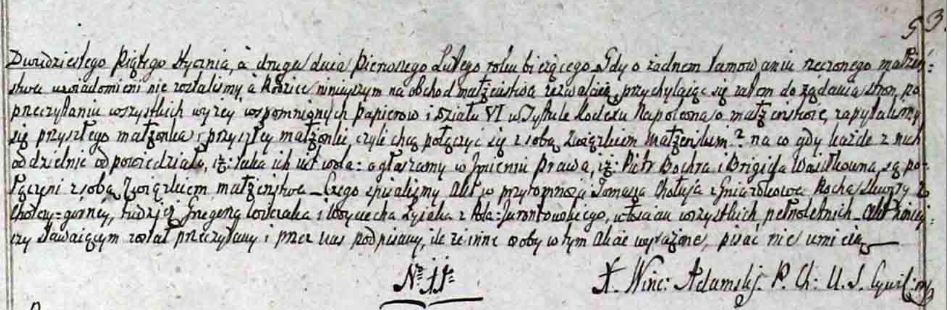 53.
Dwudziestego Piątego Stycznia, á druga dnia Pierwszego Lutego roku bieżącego. Gdy o żadnem tamowaniu rzeczonego małżeń:
stwa uwiadomieni nie zostaliśmy á Rodzice ninieyszym na obchod małżeństwa zezwalaią, przychylając się zatem do żądania stron, po
przeczytaniu wszystkich wyżey wspomnionych Papierow i Działu VI w Tytule Kodexu Napoleona o małżeństwie, zapytaliśmy
się przyszłego małżonka i przyszłey małżonki, czyli chcą połączyć się z sobą Związkiem małżenskim? na co gdy każde z nich
oddzielnie odpowiedziało, iż: taka ich iest wola: ogłaszamy w Imieniu Prawa, iż: Piotr Bochra i Brigida Wasitkowna, są po:
łączeni z sobą Związkiem małżeństwa _ Czego spisaliśmy Akt w przytomności Tomasza z Kocha
gorney, tudzież Grzegorza i Woyciecha z wszystkich pełnoletnich _ Akt niniey:
szy stawaiącym został przeczytany i przez nas podpisany, ile że inne osoby w tym Akcie wyrażone, pisać nie umieią
Nro 11.
X. Winc: Adamski. P. Ch: U. S. Cywil: mp